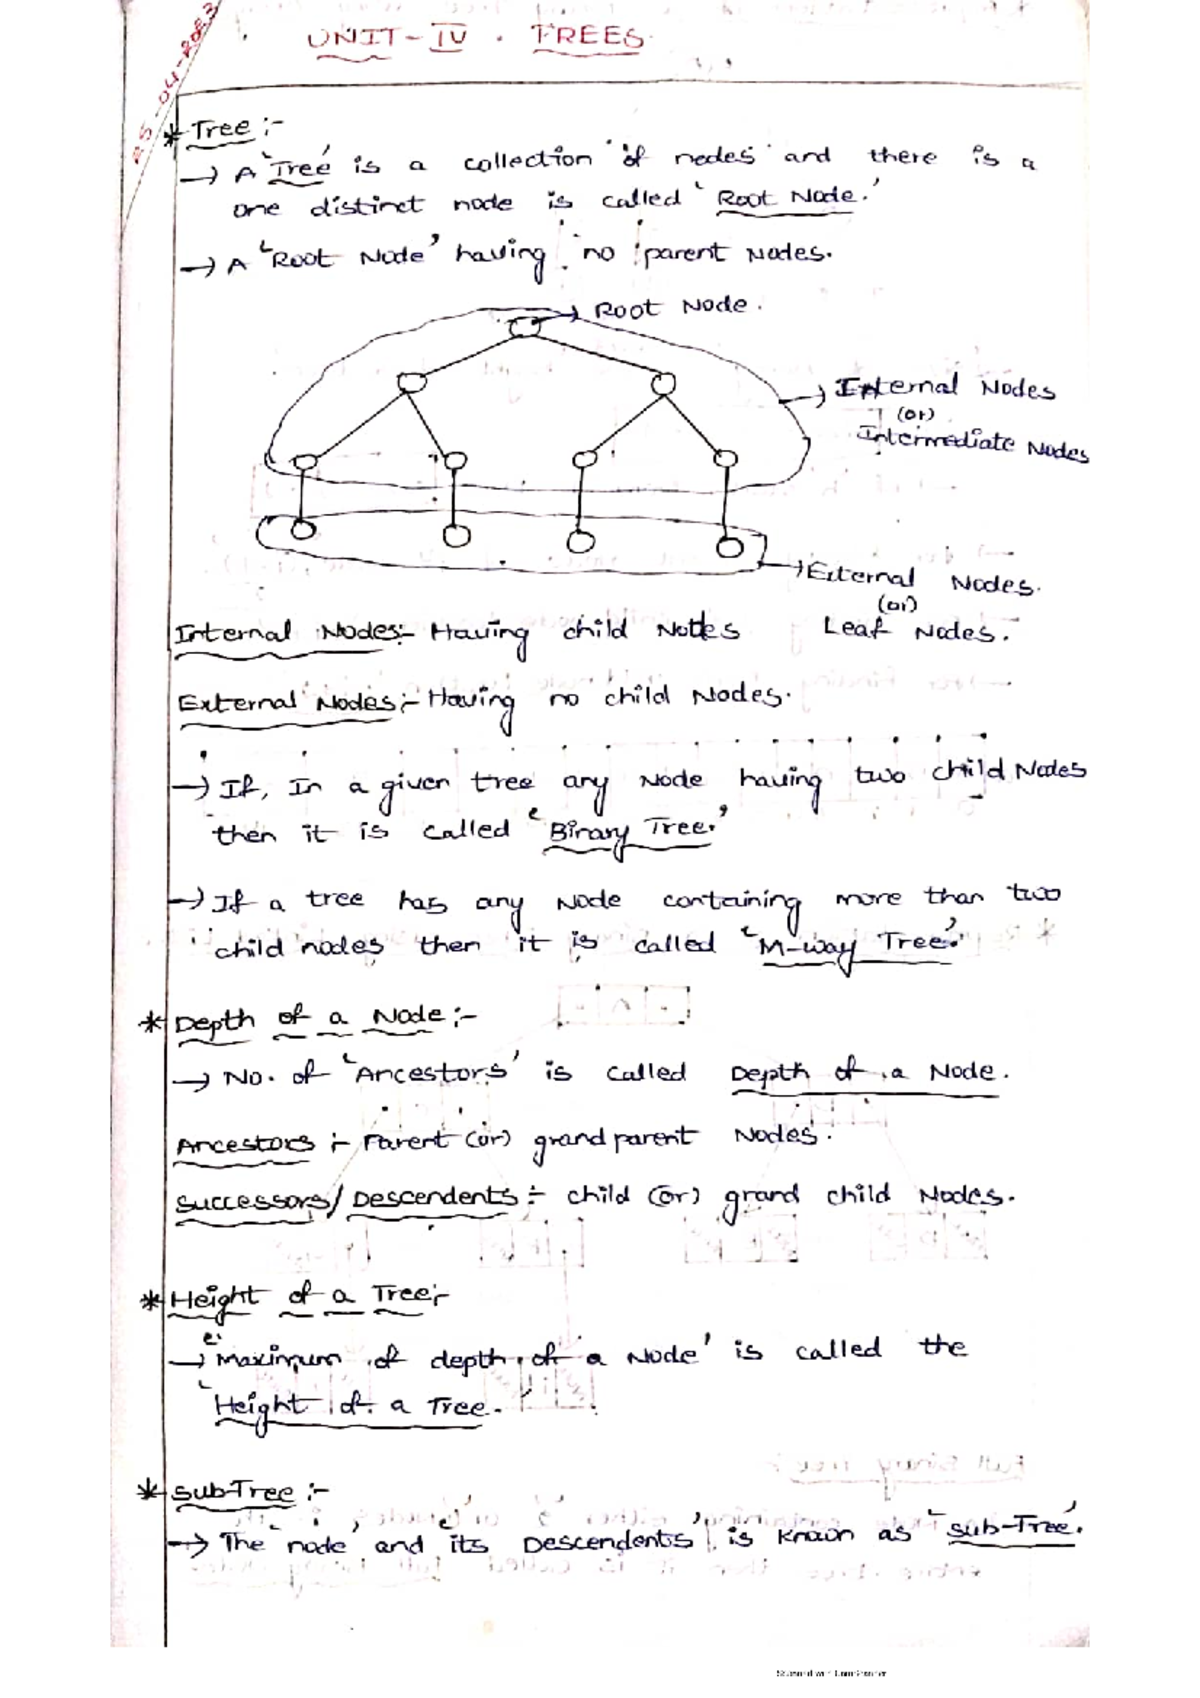 25-04-2023
UNIT-IV . TREES
* Tree :-
→ A 'Tree' is a collection of nodes and there is a
one distinct node is called 'Root Node.'
→ A 'Root Node' having no parent Nodes.
→ Root Node.
→ Internal Nodes
(or)
Intermediate Nodes
→ External Nodes.
(or)
Leaf Nodes.
Internal Nodes:- Having child Nodes
External Nodes:- Having no child Nodes.
→ If, In a given tree any Node having two child Nodes
then it is called 'Binary Tree.'
→ If a tree has any Node containing more than two
child nodes then it is called 'M-way Tree.'
* Depth of a Node:-
→ No. of 'Ancestors' is called Depth of a Node.
Ancestors :- Parent (or) grand parent Nodes.
Successors/Descendents :- child (or) grand child Nodes.
* Height of a Tree:-
→ 'Maximum of depth of a Node' is called the
'Height of a Tree.'
* Sub-Tree :-
→ The 'node' and 'its Descendents' is known as 'Sub-Tree.'
Scanned with CamScanner